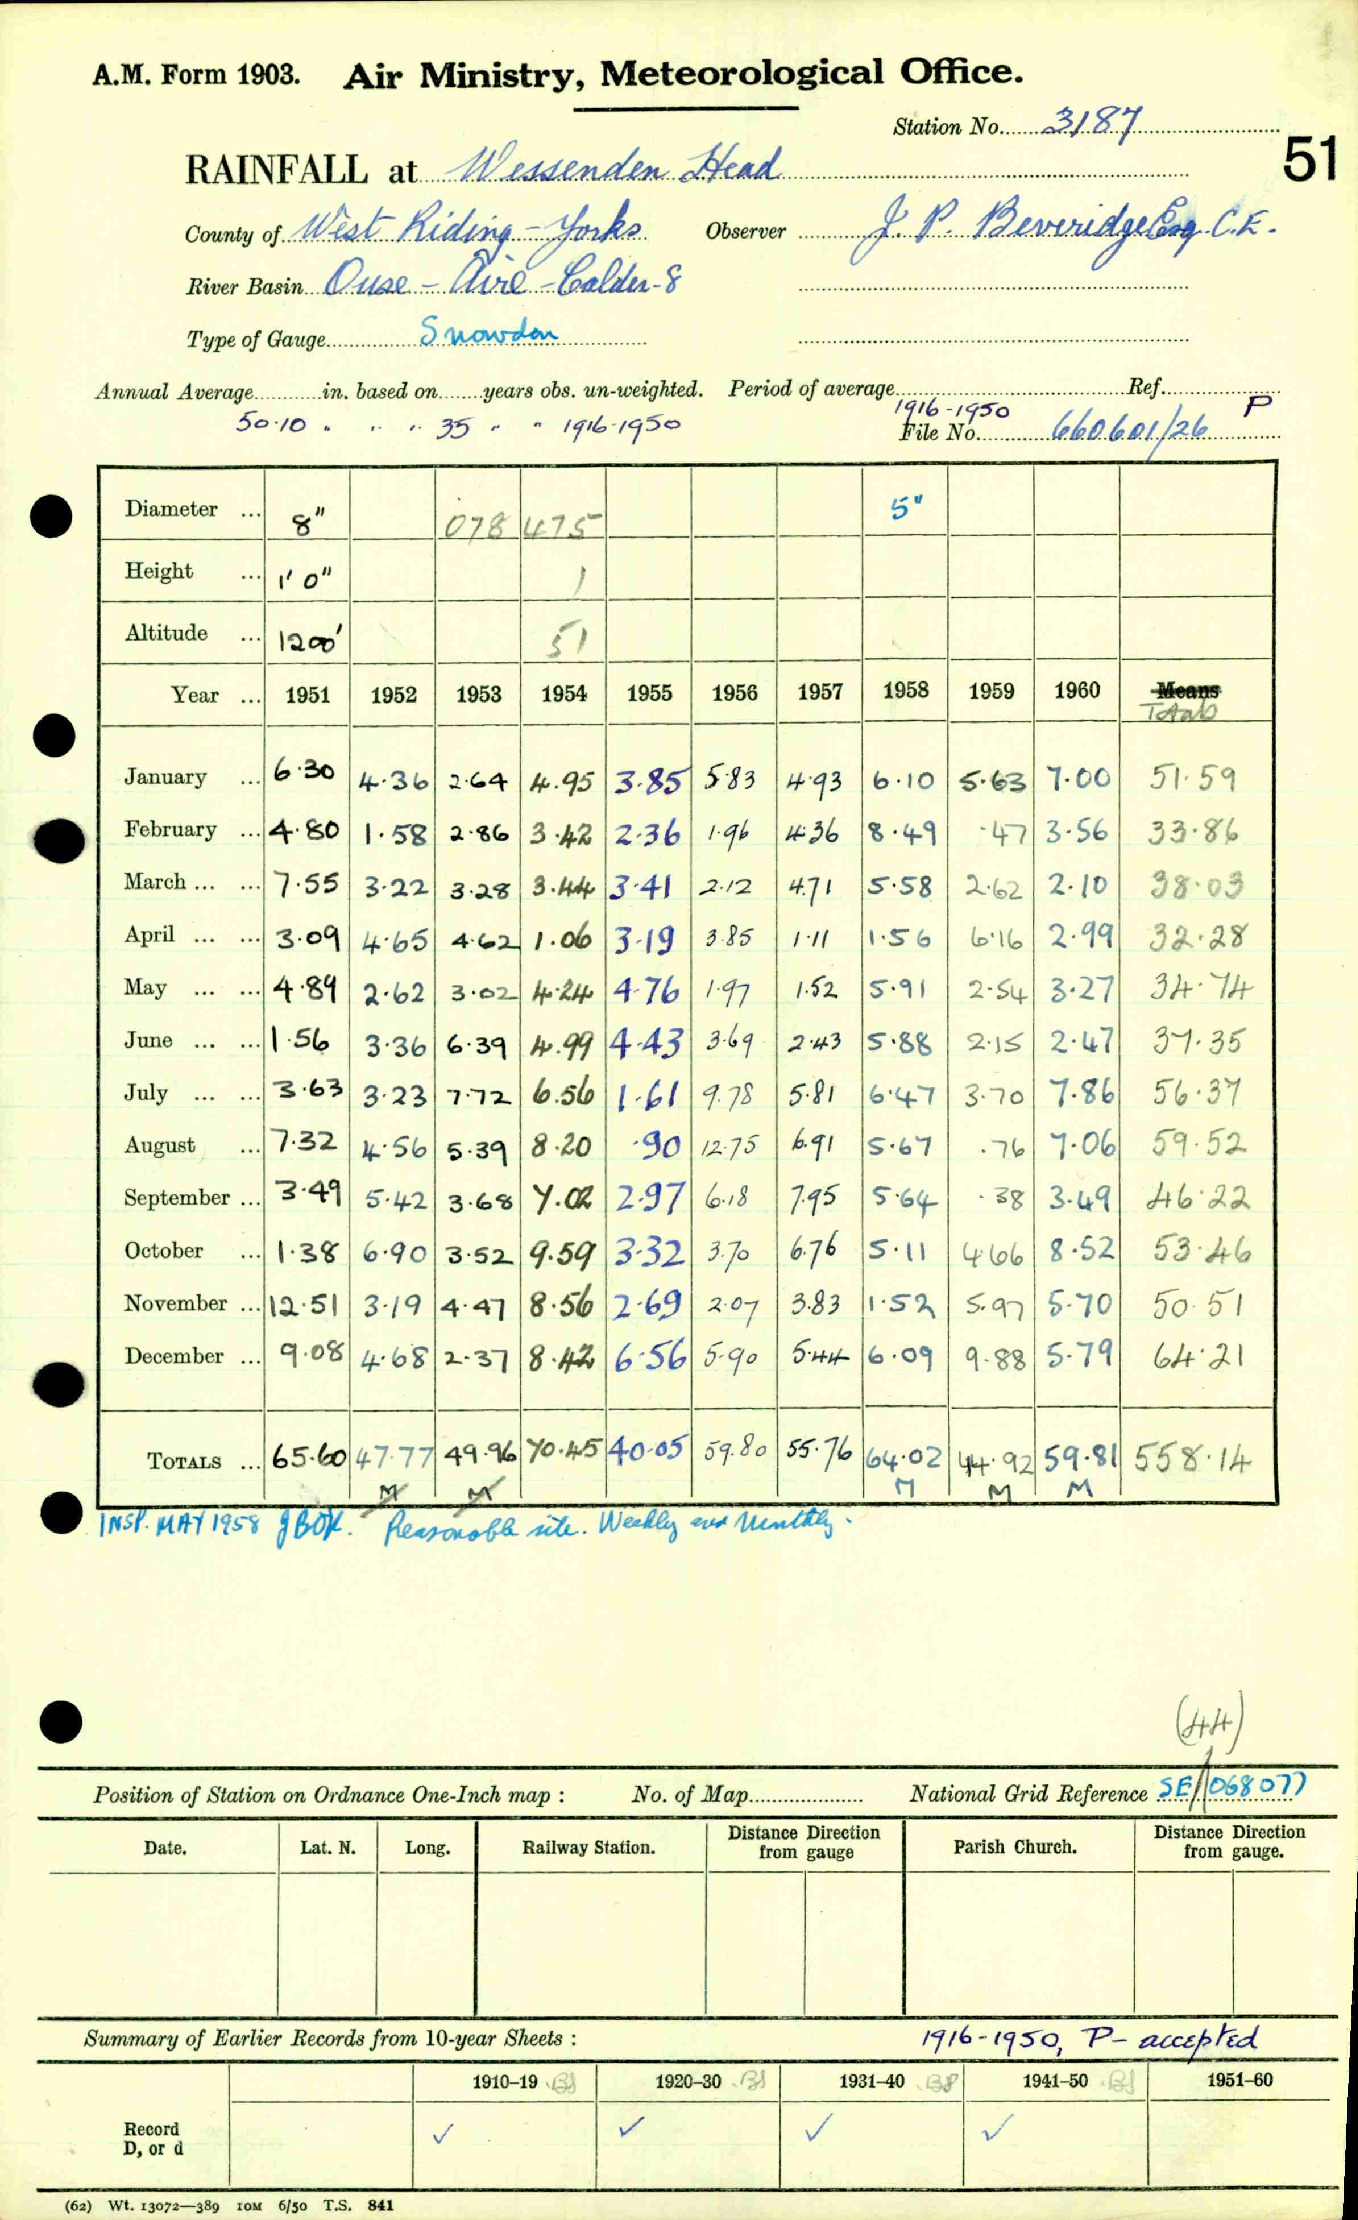 A.M. Form 1903. Air Ministry, Meteorological Office.
Station No. 3187
51
RAINFALL at Wessenden Head
County of West Riding - Yorks Observer J. P. Beveridge Esq C.E.
River Basin Ouse - Aire - Calder - 8
Type of Gauge Snowdon
Annual Average in. based on years obs. un-weighted. Period of average Ref.
50.10 " " " 35 " " 1916-1950 1916-1950 P
File No. 660601/26
Diameter ... 8" 078 475 5"
Height ... 1' 0" 1
Altitude ... 1200' 51
Year ... 1951 1952 1953 1954 1955 1956 1957 1958 1959 1960 Means
Totals
January ... 6.30 4.36 2.64 4.95 3.85 5.83 4.93 6.10 5.63 7.00 51.59
February ... 4.80 1.58 2.86 3.42 2.36 1.96 4.36 8.49 .47 3.56 33.86
March ... ... 7.55 3.22 3.28 3.44 3.41 2.12 4.71 5.58 2.62 2.10 38.03
April ... ... 3.09 4.65 4.62 1.06 3.19 3.85 1.11 1.56 6.16 2.99 32.28
May ... ... 4.89 2.62 3.02 4.24 4.76 1.97 1.52 5.91 2.54 3.27 34.74
June ... ... 1.56 3.36 6.39 4.99 4.43 3.69 2.43 5.88 2.15 2.47 37.35
July ... ... 3.63 3.23 7.72 6.56 1.61 9.78 5.81 6.47 3.70 7.86 56.37
August ... 7.32 4.56 5.39 8.20 .90 12.75 6.91 5.67 .76 7.06 59.52
September ... 3.49 5.42 3.68 7.02 2.97 6.18 7.95 5.64 .38 3.49 46.22
October ... 1.38 6.90 3.52 9.59 3.32 3.70 6.76 5.11 4.66 8.52 53.46
November ... 12.51 3.19 4.47 8.56 2.69 2.07 3.83 1.52 5.97 5.70 50.51
December ... 9.08 4.68 2.37 8.42 6.56 5.90 5.44 6.09 9.88 5.79 64.21
TOTALS ... 65.60 47.77 49.96 70.45 40.05 59.80 55.76 64.02 44.92 59.81 558.14
M M M M M
INSP. MAY 1958 Reasonable site. Weekly and Monthly.
(44)
Position of Station on Ordnance One-Inch map : No. of Map National Grid Reference SE/068077
Date. Lat. N. Long. Railway Station. Distance Direction from gauge Parish Church. Distance Direction from gauge.
Summary of Earlier Records from 10-year Sheets : 1916-1950, P- accepted
1910–19 1920–30 1931–40 1941–50 1951–60
Record
D, or d ✓ ✓ ✓ ✓
(62) Wt. 13072—389 10M 6/50 T.S. 841